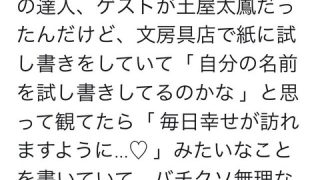 の達人、ゲストが土屋太鳳だっ
たんだけど、文房具店で紙に試
し書きをしていて「 自分の名前
を試し書きしてるのかな 」と思
って観てたら「 毎日幸せが訪れ
ますように...♡ 」みたいなこと
を書いていて、バチクソ無理な